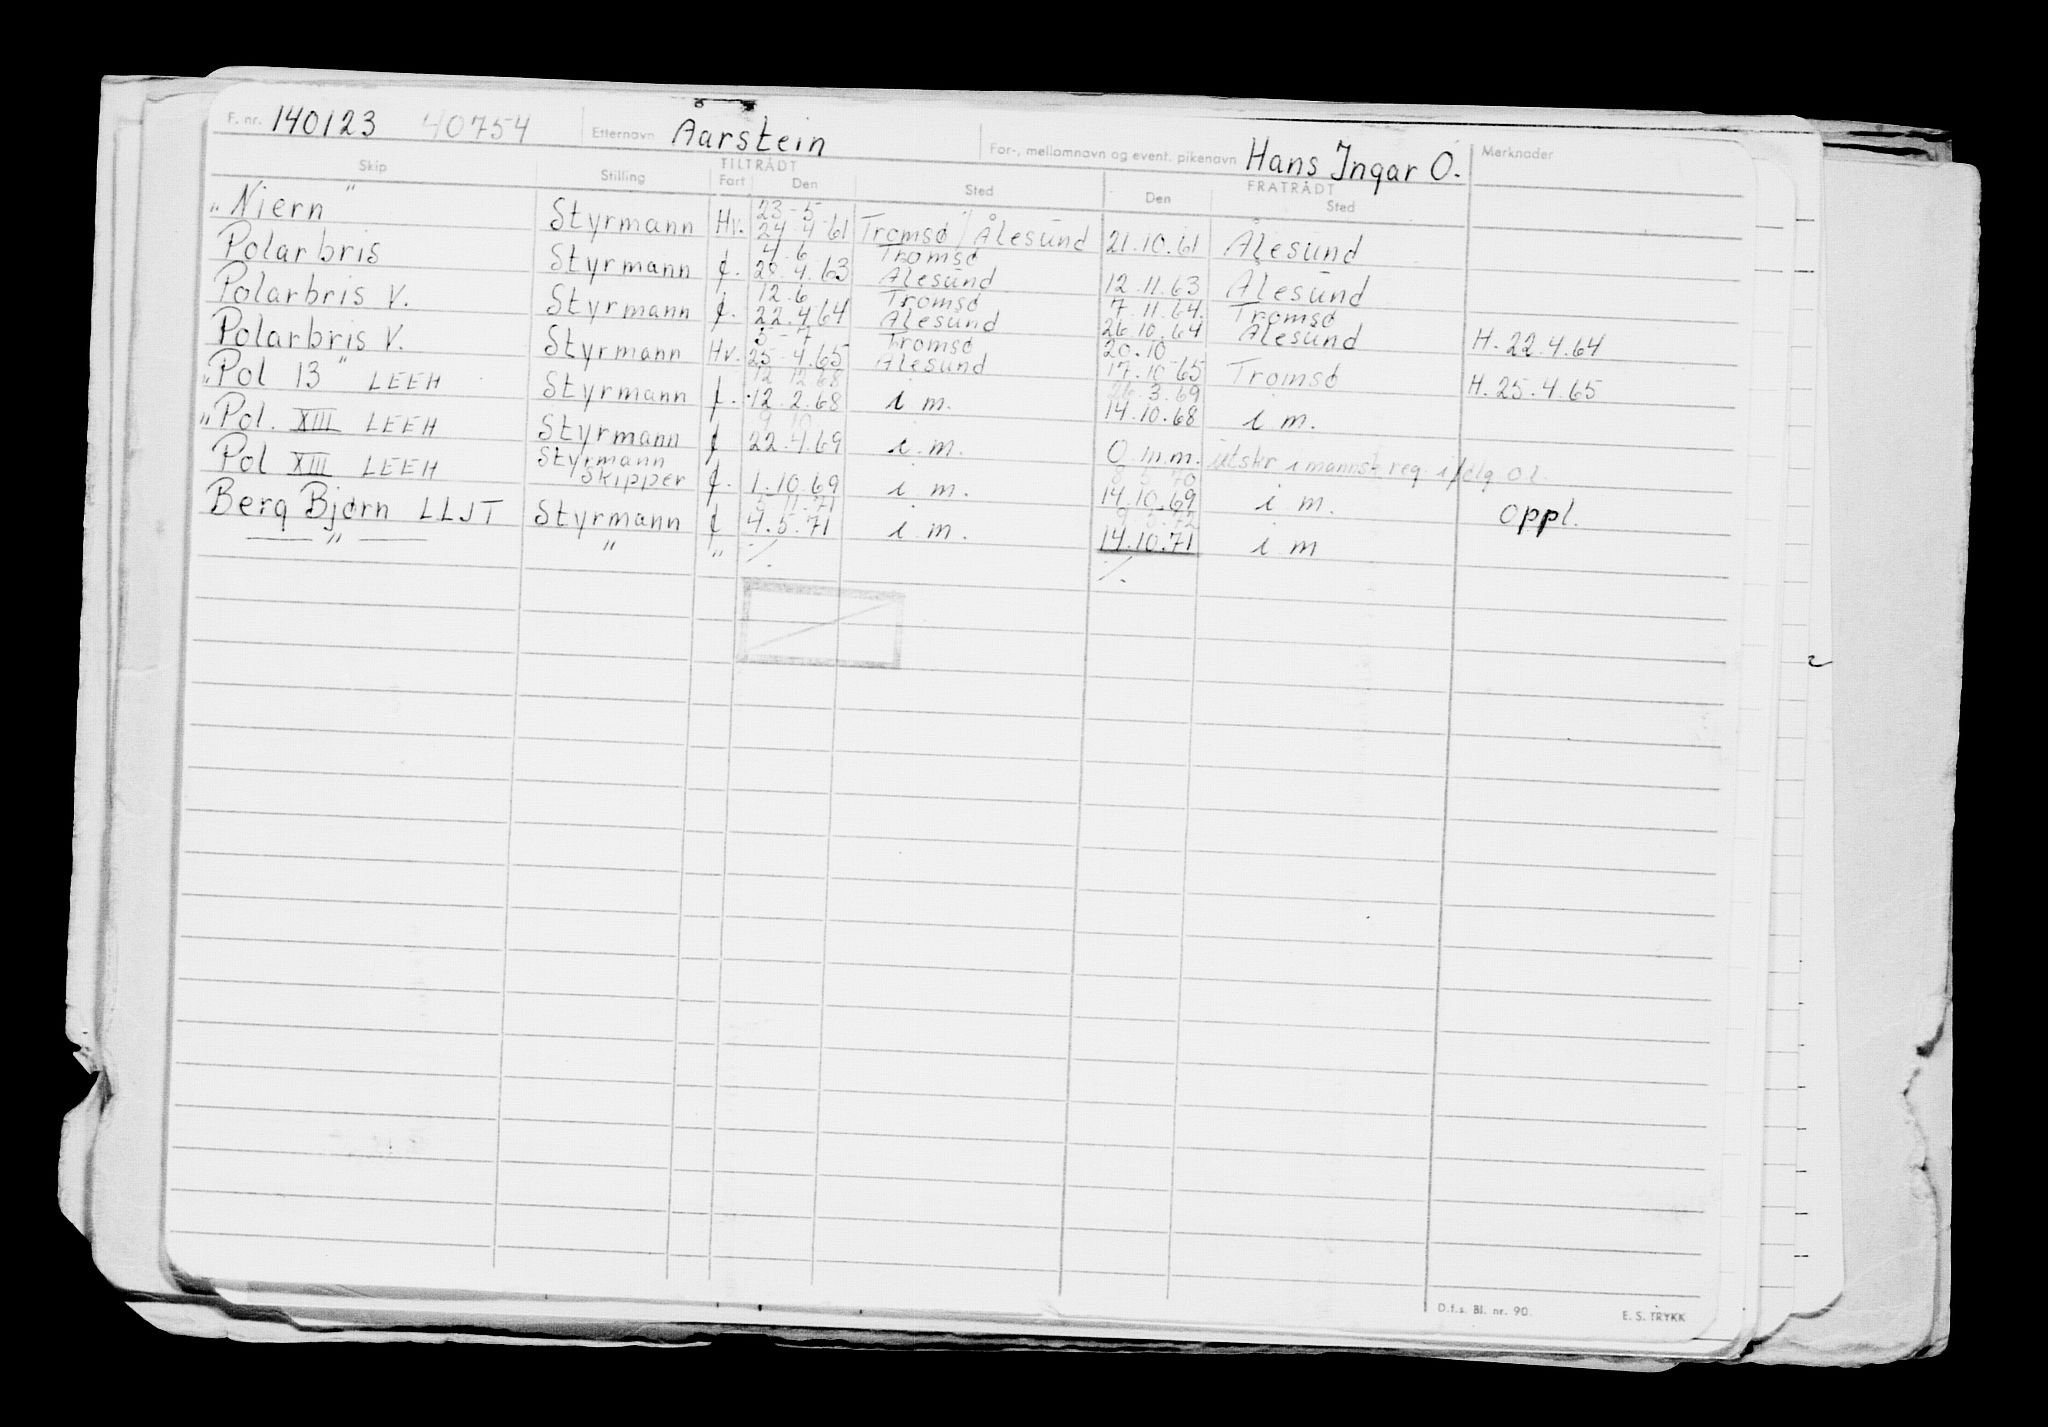 F. nr. 140123 40754 Etternavn Aarstein For-, mellomnavn og event. pikenavn Hans Ingar O. Merknader
Skip Stilling TILTRÅDT Fart Den Sted FRATRÅDT Den Sted
"Njern" Styrmann Hv. 23-5 24-4-61 Tromsø / Ålesund 21.10.61 Ålesund
Polarbris Styrmann f. 4.6 20.4.63 Tromsø Ålesund 12.11.63 Ålesund
Polarbris V. Styrmann f. 12.6 22.4 64 Tromsø Ålesund 7.11.64. 26.10.64 Tromsø Ålesund H. 22.4.64
Polarbris V. Styrmann Hv. 5-7 25-4.65 Tromsø Ålesund 20.10 17.10-65 Tromsø H. 25.4.65
"Pol 13" LEEH Styrmann f. 12 12 68 12.2.68 i m. 26.3.69 14.10.68 i m.
"Pol. XIII LEEH Styrmann f 9 10 22.4.69 i.m. O.m.m. utskr i mannsk req. ifølg O2.
Pol XIII LEEH Styrmann Skipper f. 1.10.69 i m. 8 5 70 14.10.69 i m. Oppl.
Berg Bjørn LLJT Styrmann f 5 11.71 4.5.71 i m. 9 5.72 14.10.71 i m
" " " ·/. ·/.
D.f.s. Bl. nr. 90. E. S. TRYKK